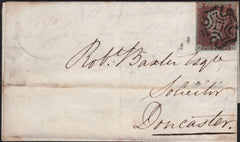 Robt. Baxter Esqre
Solicitor
Doncaster.